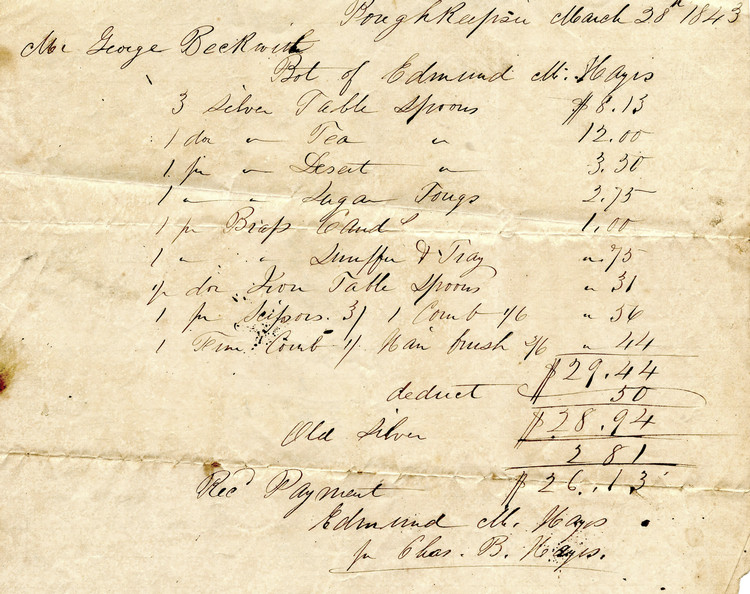 Poughkeepsie March 28th 1843
Mr George Beckwith
Bot of Edmund M. Hayes
3 Silver Table Spoons $8.13
1 doz " Tea " 12.00
1 pr " Desert " 3.50
1 " " Sugar Tongs 2.75
1 pr Brass Cands 1.00
1 " " Snuffer & Tray " 75
½ doz Iron Table Spoons " 31
1 pr Scissors 3/ 1 Comb 1/6 " 56
1 Fine Comb 1/ Hair brush 2/6 " 44
$29.44
deduct 50
$28.94
Old Silver 2 81
Recd Payment $26.13
Edmund M. Hayes
pr Chas. B. Hayes.